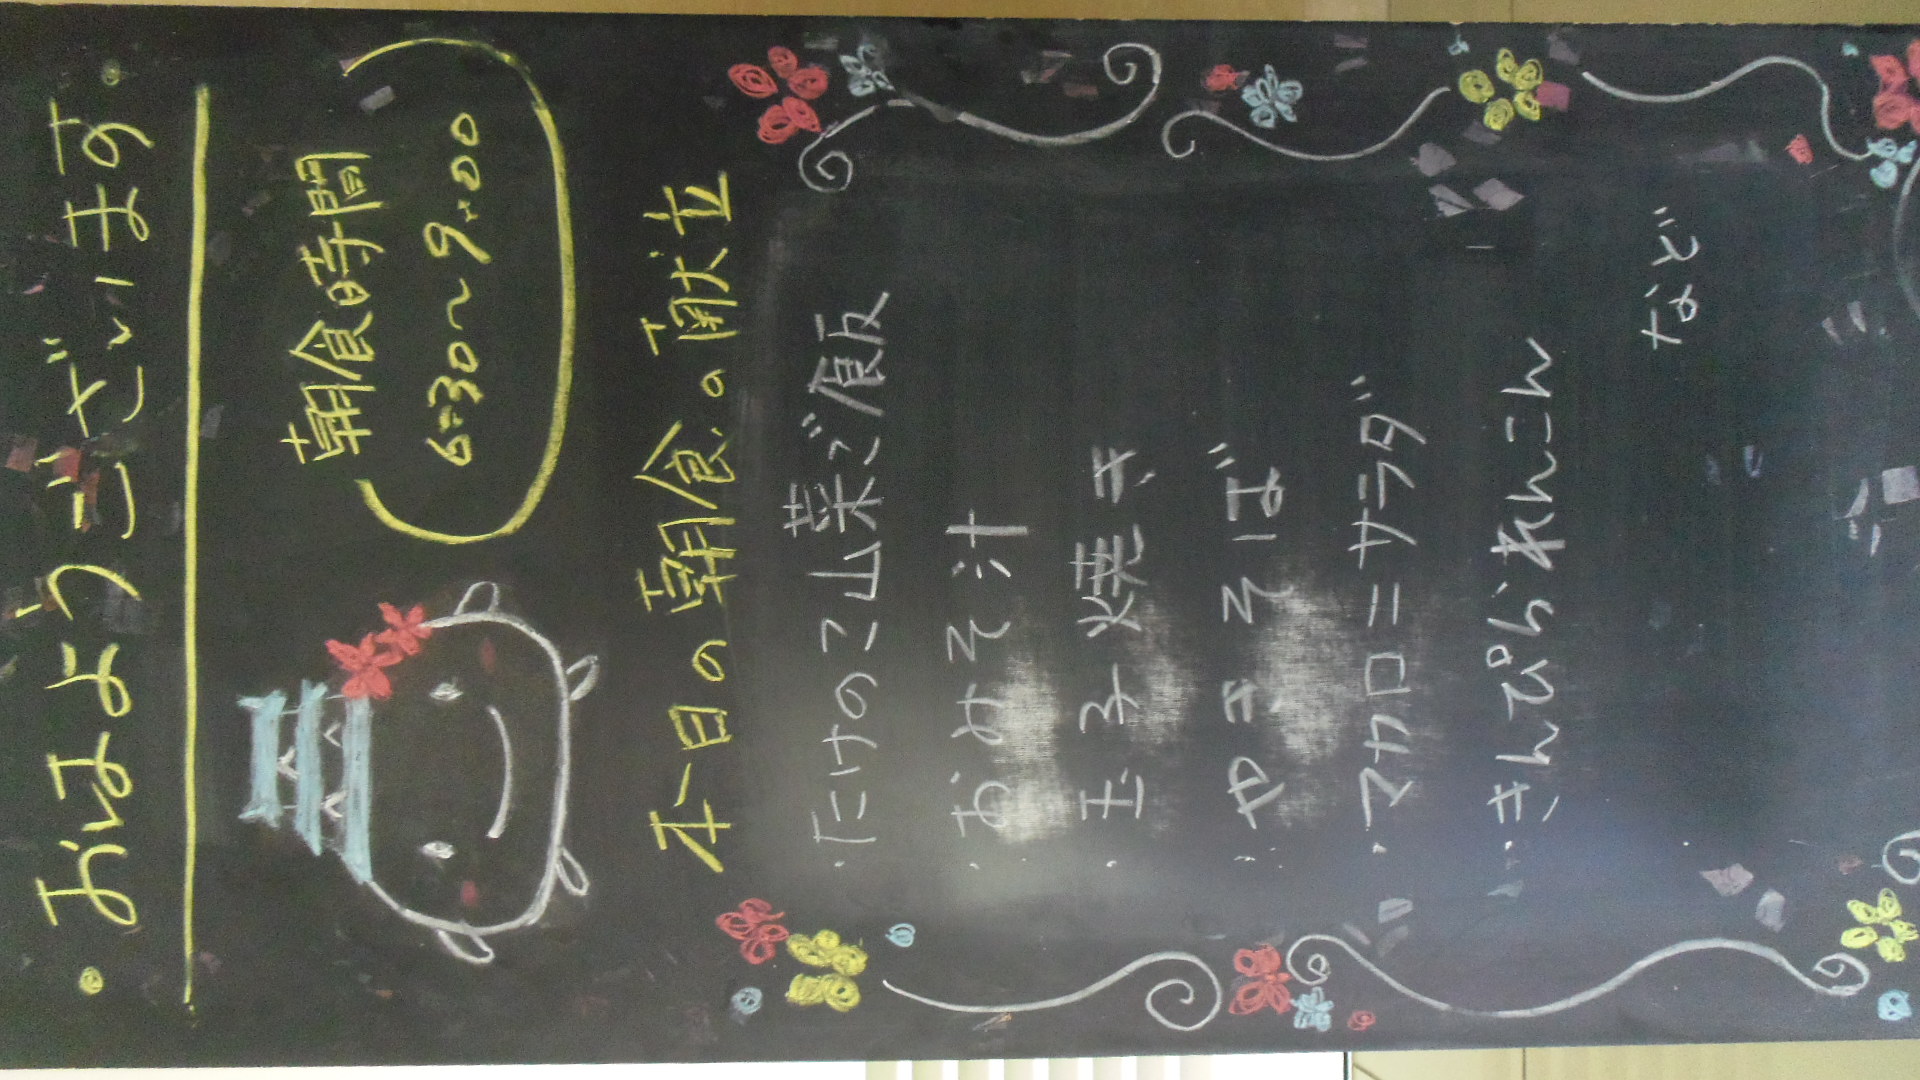 ・おはようございます・
朝食時間
6:30〜9:00
本日の朝食の献立
・たけのこ山菜ご飯
・おみそ汁
・玉子焼き
・やきそば
・マカロニサラダ
・きんぴられんこん
など